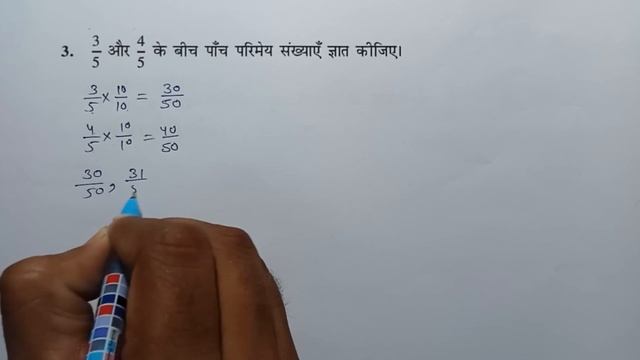 3. 3/5 और 4/5 के बीच पाँच परिमेय संख्याएँ ज्ञात कीजिए।
3/5 × 10/10 = 30/50
4/5 × 10/10 = 40/50
30/50, 31/5